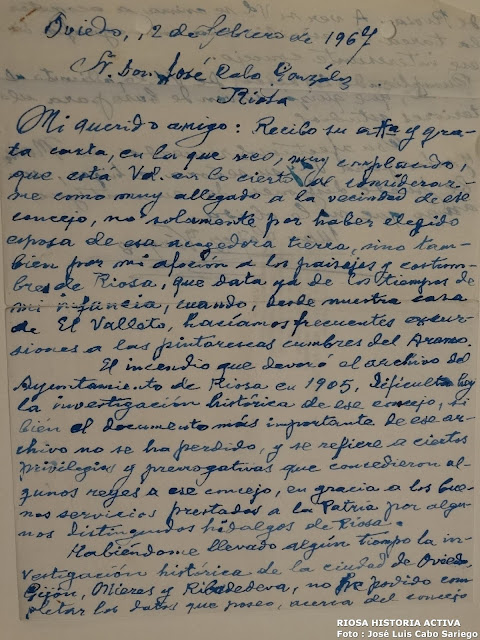 Oviedo, 12 de febrero de 1967
Sr. Don José Cabo González.
Riosa
Mi querido amigo: Recibo su atta y gra-
ta carta, en la que veo, muy complacido,
que esta Vd. en lo cierto al considerar-
me como muy allegado a la vecindad de ese
concejo, no solamente por haber elegido
esposa de esa acogedora tierra, sino tam-
bien por mi afeción a los paisajes y costum-
bres de Riosa, que data ya de los tiempos de
mi infancia, cuando, desde nuestra casa
de El Valloto, hacíamos frecuentes excur-
siones a las pintorescas cumbres del Aramo.
El incendio que devoró el archivo del
Ayuntamiento de Riosa en 1905, dificulta hoy
la investigación histórica de ese concejo, si
bien el documento más importante de ese ar-
chivo no se ha perdido, y se refiere a ciertos
privilegios y prerrogativas que concedieron al-
gunos reyes a ese concejo, en gracia a los bue-
nos servicios prestados a la Patria por algu-
nos distinguidos hidalgos de Riosa.
Habiéndome llevado algún tiempo la in-
vestigación histórica de la ciudad de Oviedo,
Gijón, Mieres y Ribadedeva, no he podido com-
pletar los datos que poseo, acerca del concejo
RIOSA HISTORIA ACTIVA
Foto : José Luis Cabo Sariego